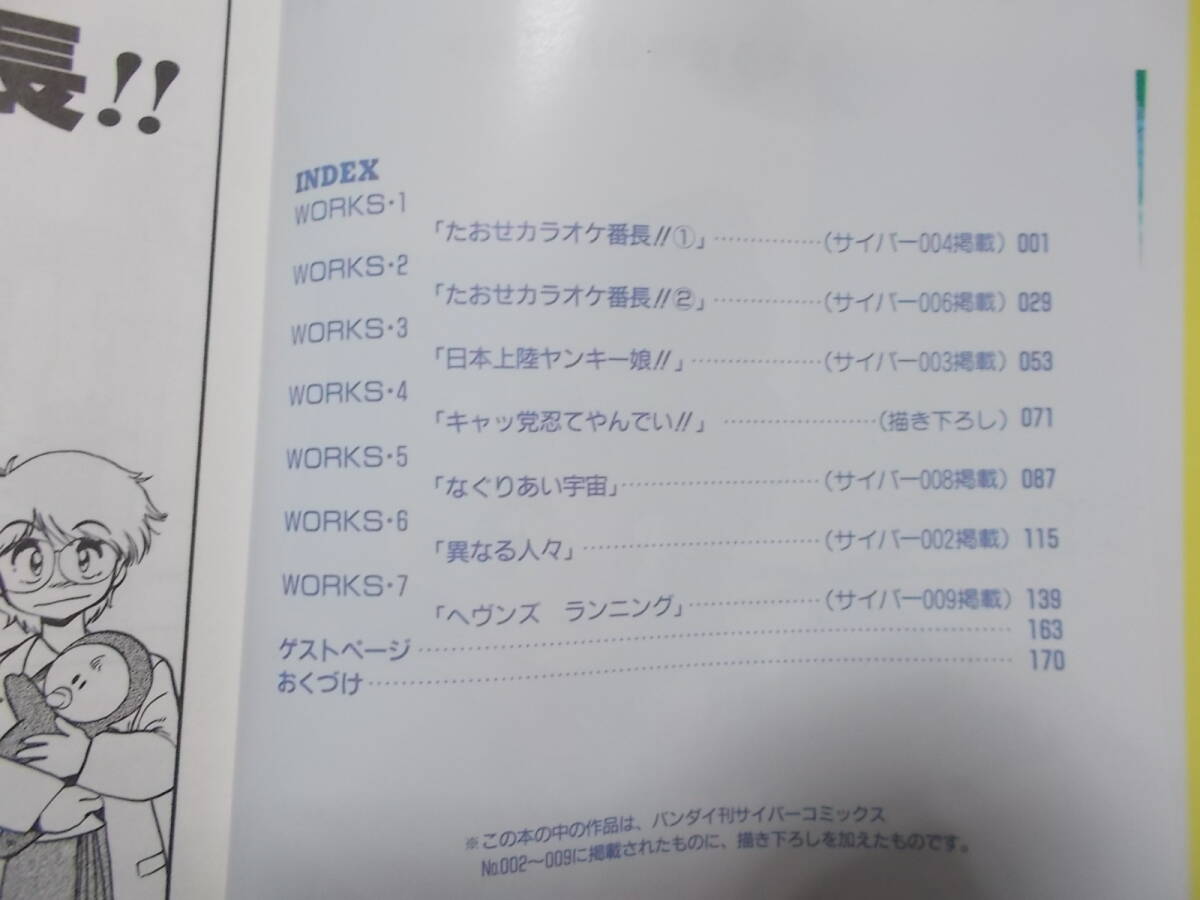 長!!
INDEX
WORKS・1
「たおせカラオケ番長!!①」……………(サイバー004掲載) 001
WORKS・2
「たおせカラオケ番長!!②」……………(サイバー006掲載) 029
WORKS・3
「日本上陸ヤンキー娘!!」………………(サイバー003掲載) 053
WORKS・4
「キャッ党忍てやんでい!!」 …………………(描き下ろし) 071
WORKS・5
「なぐりあい宇宙」………………………(サイバー008掲載) 087
WORKS・6
「異なる人々」……………………………(サイバー002掲載) 115
WORKS・7
「ヘヴンズ ランニング」………………(サイバー009掲載) 139
ゲストページ……………………………………………………… 163
おくづけ…………………………………………………………… 170
※この本の中の作品は、バンダイ刊サイバーコミックス
No.002〜009に掲載されたものに、描き下ろしを加えたものです。